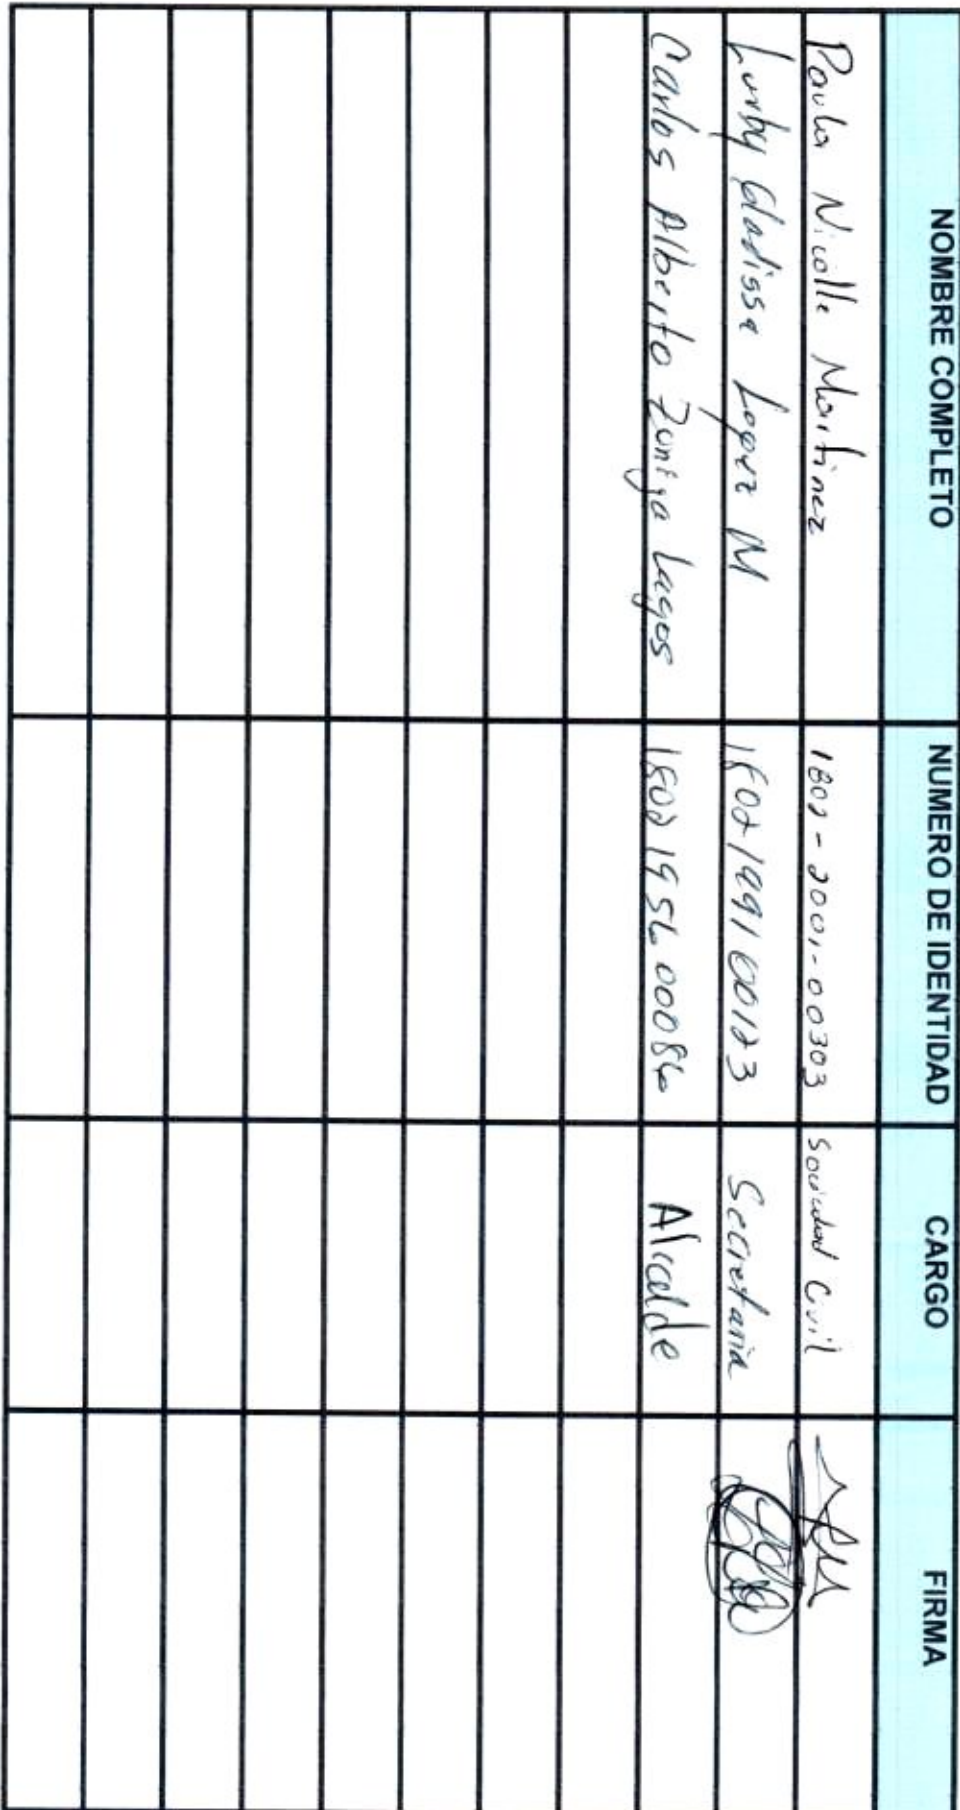 NOMBRE COMPLETO NUMERO DE IDENTIDAD CARGO FIRMA
Paula Nicolle Martinez 1802-2001-00303 Sociedad Civil
Lurby Gladissa Lopez M 1802199100123 Secretaria
Carlos Alberto Zuniga Lagos 1802195600086 Alcalde